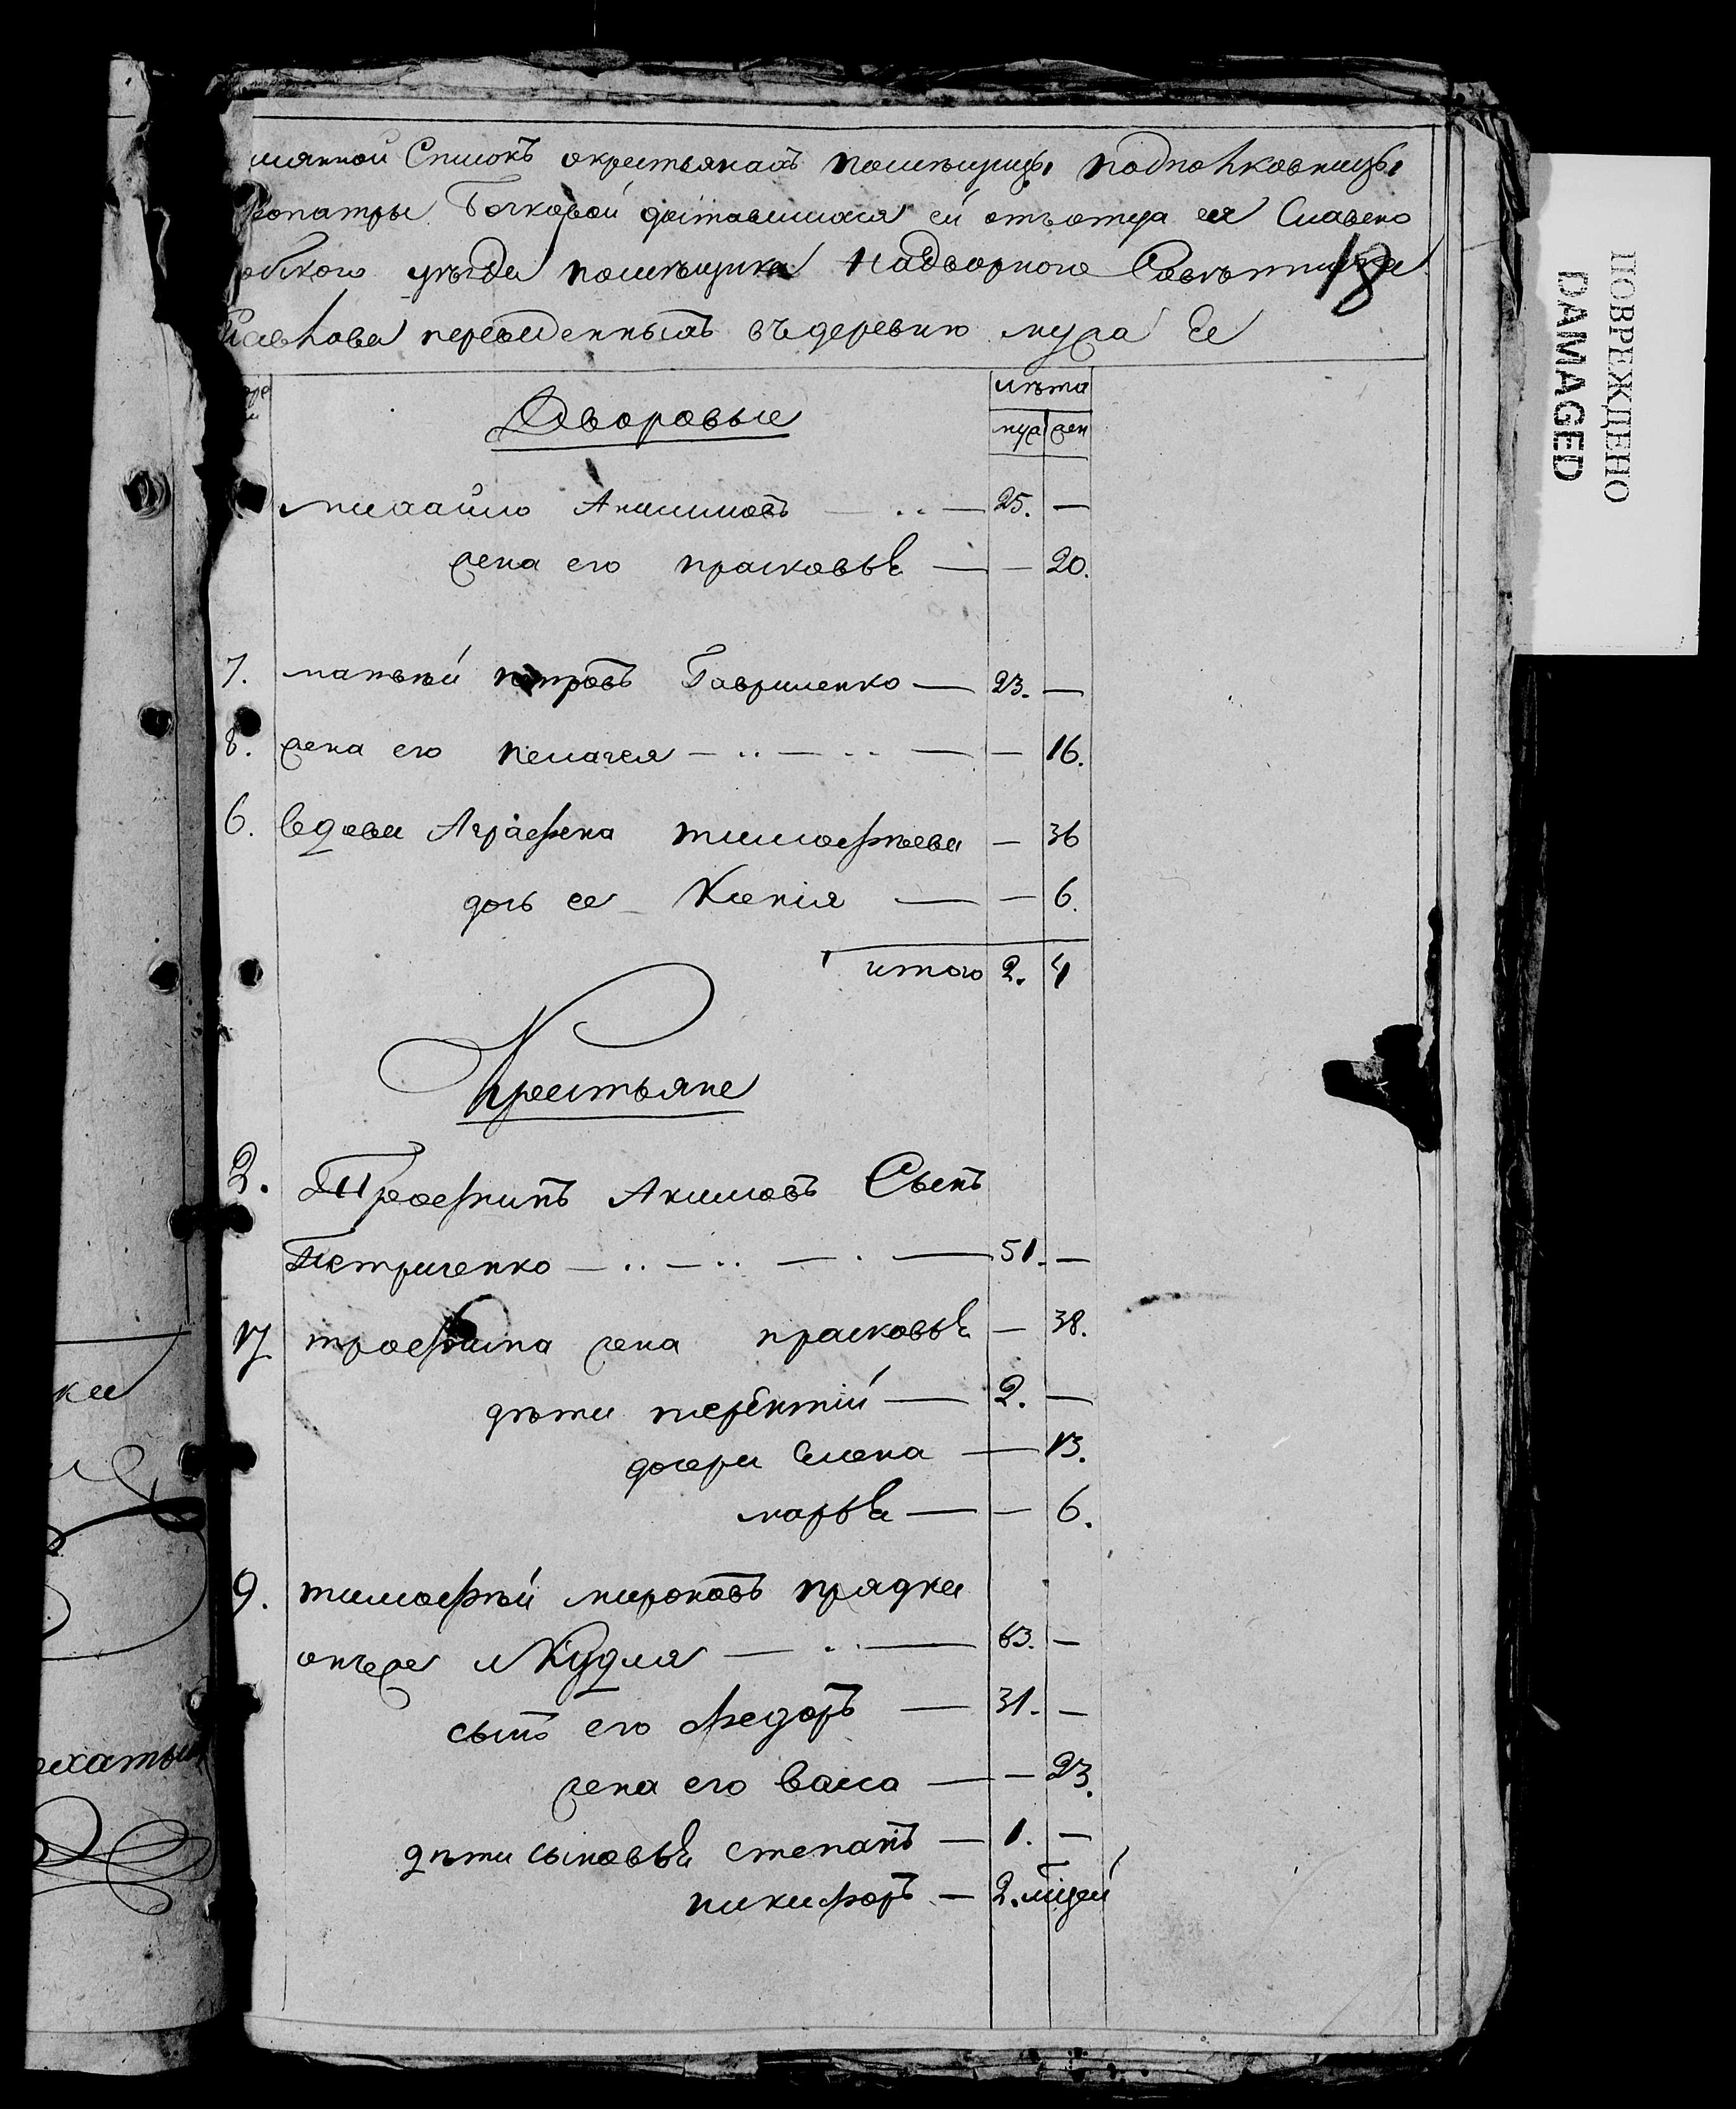 мянной Списокъ окрестьянахъ помѣщицы подполковницы
опатры Бочковой доставшихся ей отъ отца ея Славено
рбского уѣзда помѣщика Надворного Советника
18
авлова переведенныхъ въ деревню мужа Ее
лѣта
Дворовые
муж жен
михайло Акимовъ — .. — 25. —
жена его прасковья — — 20.
7. матвѣй петровъ Гавриленко — 23. —
8. жена его пелагея — .. — .. — — 16.
6. вдова Аграфена тимофѣева — 36
дочь ее Ксенія — — 6.
итого 2. 4
Крестьяне
2. Трофимъ Акимовъ Сынъ
Петриченко — .. — .. — . — 51. —
17 трофима жена прасковья — 38.
дѣти терентій — 2. —
дочери Елена — 13.
марья — — 6.
9. тимофѣй мироновъ прядка
онъже и Кудля — .. — 63. —
сынъ его федоръ — 31. —
жена его васса — — 23.
дѣти сыновья степанъ — 1. —
никифоръ — 2. мцей
кее
ПОВРЕЖДЕНО
DAMAGED